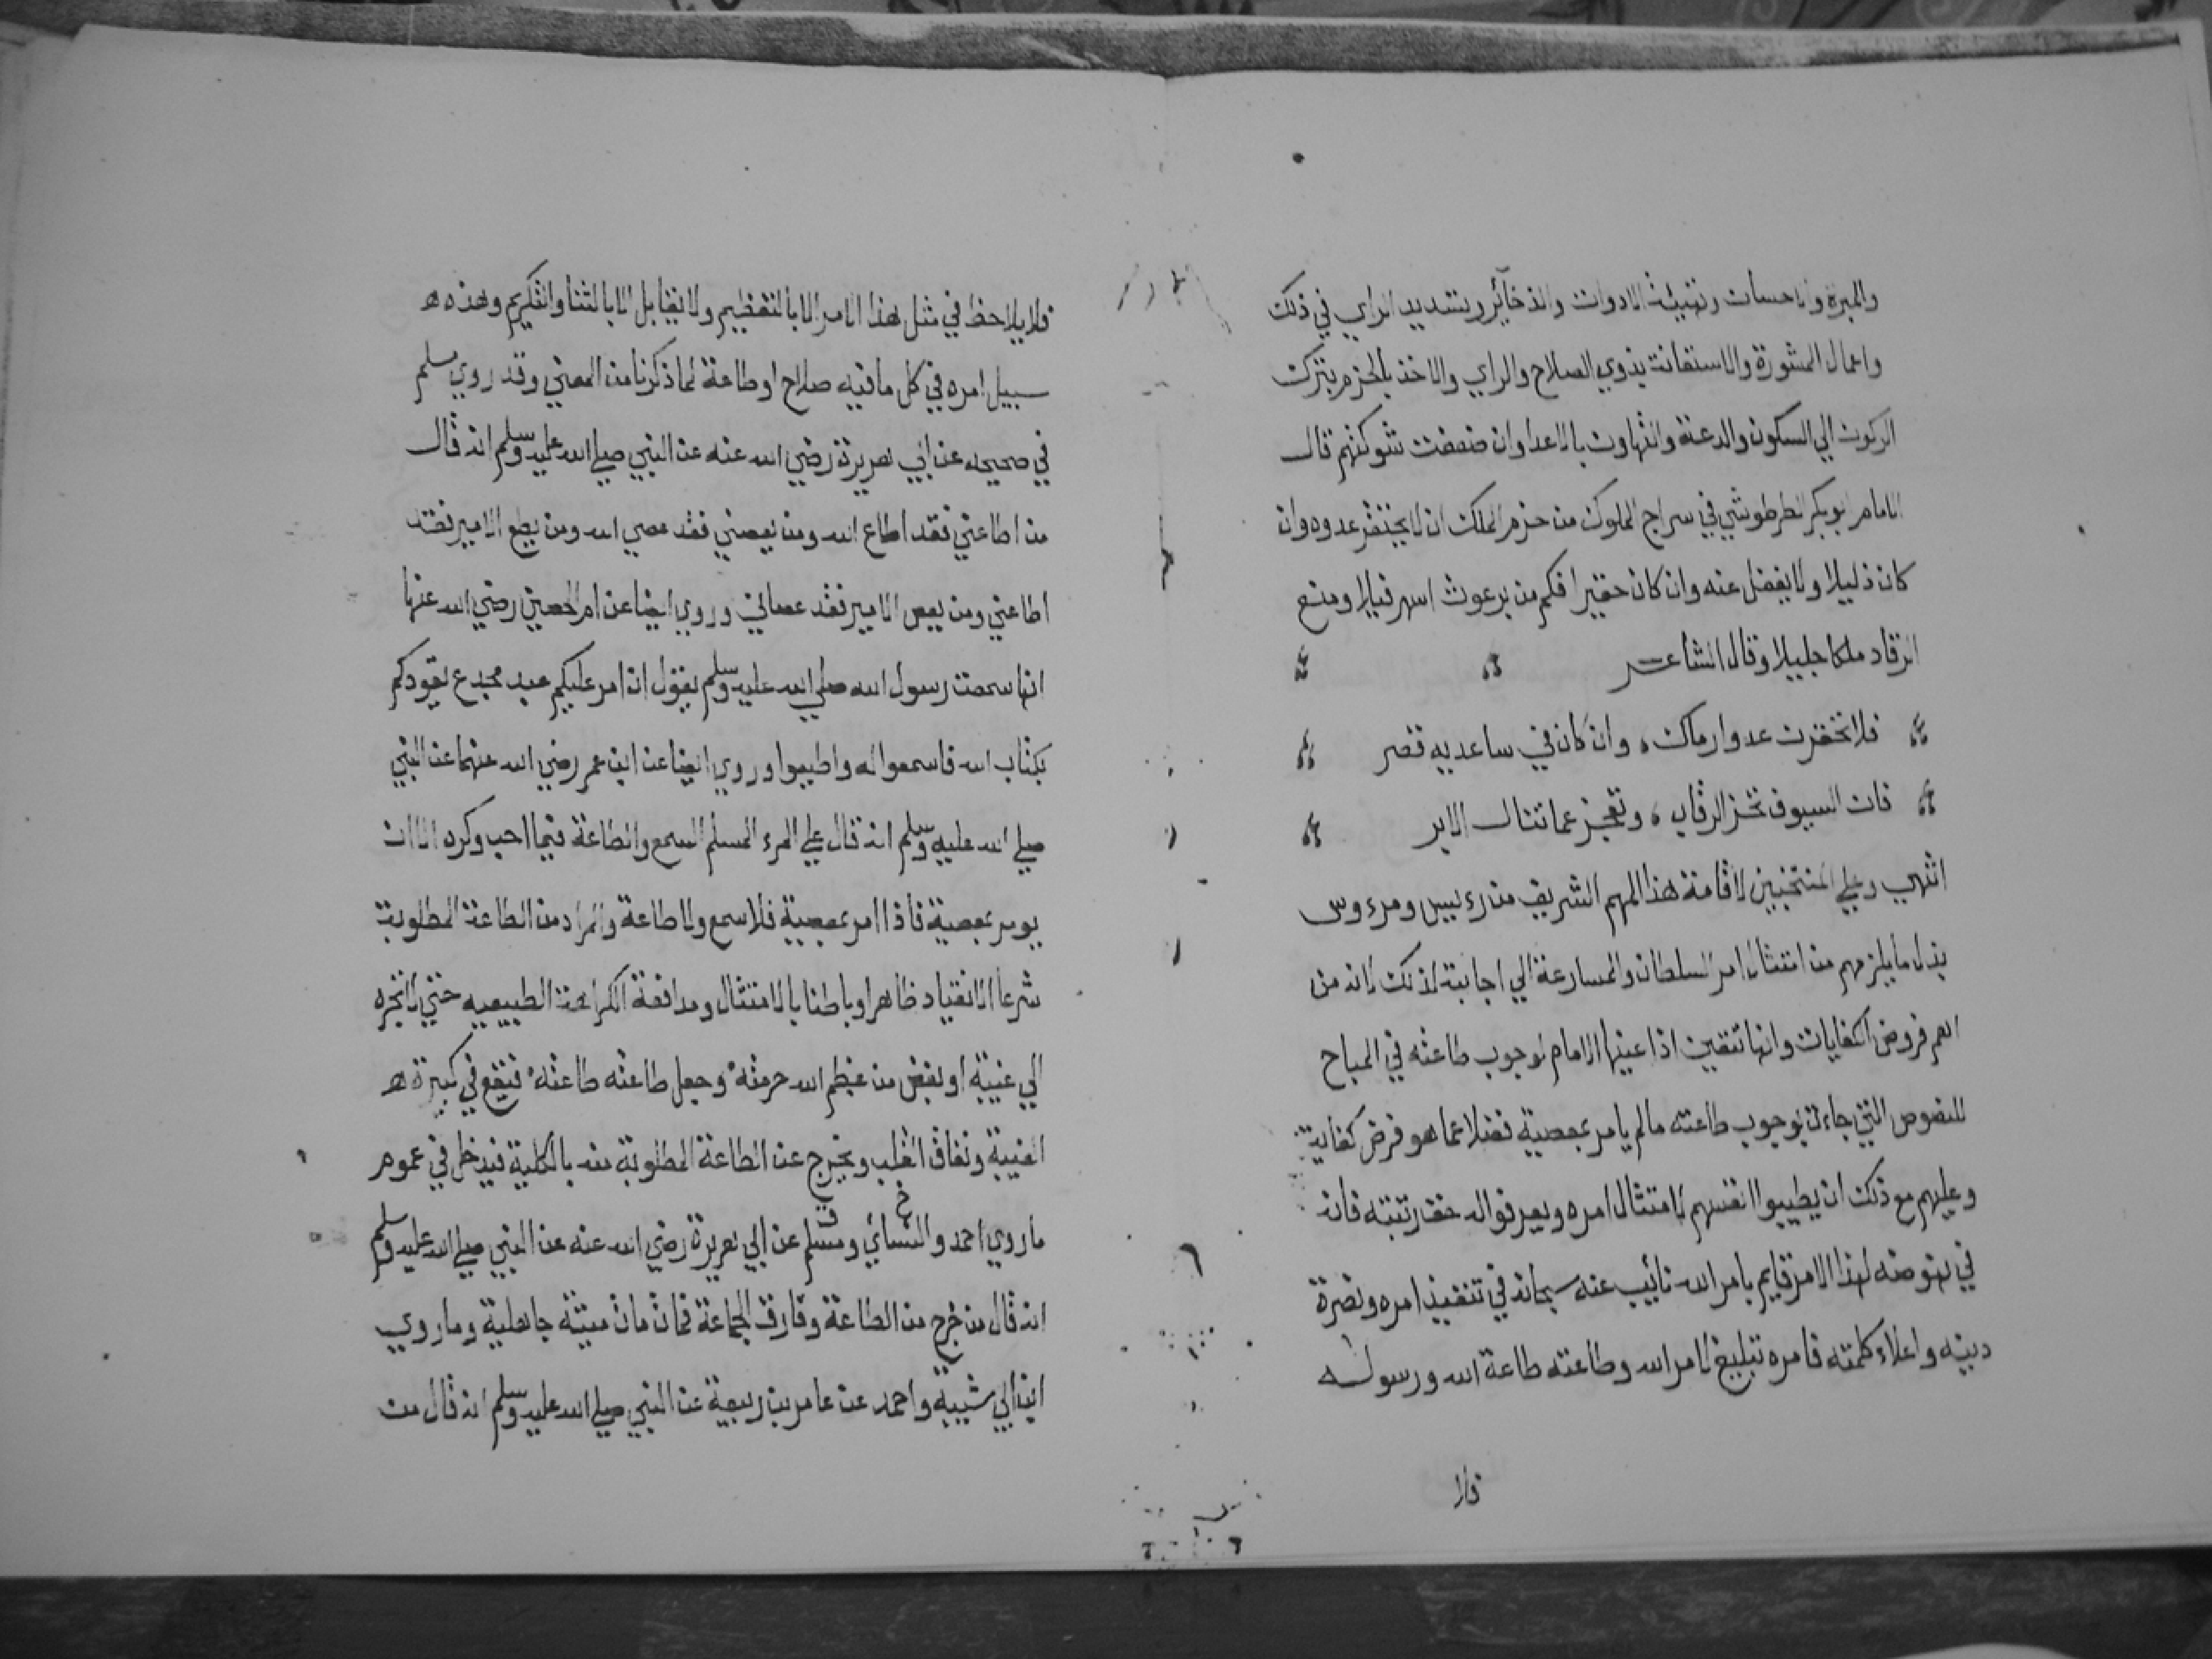 والمبرة والاحسان وتهيئة الادوات والذخآئر وتسديد الراي في ذلك
واعمال المشورة والاستعانة بذوي الصلاح والراي والاخذ بالحزم بترك
الركون الي السكون والدعة والتهاون بالاعدا وان ضعفت شوكتهم قال
الامام ابوبكر الطرطوشي في سراج الملوك من حزم الملك ان لا يحتقر عدوه وان
كان ذليلا ولا يغفل عنه وان كان حقيرا فكم من برغوث اسهر فيلا ومنع
الرقاد ملكا جليلا وقال الشاعر
فلا تحقرن عدوا رماك، وان كان في ساعديه قصر
فان السيوف تحز الرقاب، وتعجز عما تنال الابر
انتهي وعلي المنتخبين لاقامة هذا المهم الشريف من رءييس ومرءوس
بذل ما يلزمهم من امتثال امر السلطان والمسارعة الي اجابته لذلك لانه من
اهم فروض الكفايات وانها تتعين اذا عينها الامام لوجوب طاعته في المباح
للنصوص التي جاءت بوجوب طاعته مالم يامر بمعصية فضلا عما هو فرض كفاية
وعليهم مع ذلك ان يطيبوا انفسهم لامتثال امره ويعرفوا له حق رتبته فانه
في نهوضه لهذا الامر قايم بامر الله نائيب عنه سبحانه في تنفيذ امره ونصرة
دينه واعلاء كلمته فامره تبليغ لامر الله وطاعته طاعة الله ورسوله
فلا
فلا يلاحظ في مثل هذا الامر الا بالتعظيم ولا يقابل الا بالثنا والتكريم وهذه
سبيل امره في كل ما فيه صلاح او طاعة لما ذكرنا من المعني وقد روي مسلم
في صحيحه عن ابي هريرة رضي الله عنه عن النبي صلي الله عليه وسلم انه قال
من اطاعني فقد اطاع الله ومن يعصني فقد عصي الله ومن يطع الامير فقد
اطاعني ومن يعص الامير فقد عصاني وروي ايضا عن ام الحصين رضي الله عنها
انها سمعت رسول الله صلي الله عليه وسلم يقول ان امر عليكم عبد مجدع يقودكم
بكتاب الله فاسمعوا له واطيعوا وروي ايضا عن ابن عمر رضي الله عنهما عن النبي
صلي الله عليه وسلم انه قال علي المرء المسلم السمع والطاعة فيما احب وكره الا ان
يومر بمعصية فاذا امر بمعصية فلا سمع ولا طاعة والمراد من الطاعة المطلوبة
شرعا الانقياد ظاهرا وباطنا بالامتثال ومدافعة الكراهة الطبيعيه حتي لا تجره
الي غيبة او بغض من عظم الله حرمته وجعل طاعته طاعته فيقع في كبيرة
الغيبة ونفاق القلب ويخرج عن الطاعة المطلوبة منه بالكلية فيدخل في عموم
ما روي احمد والنسائي ومسلم عن ابي هريرة رضي الله عنه عن النبي صلي الله عليه وسلم
انه قال من خرج من الطاعة وفارق الجماعة فمات مات ميتة جاهلية وما روي
ابن ابي شيبة واحمد عن عامر بن ربيعة عن النبي صلي الله عليه وسلم انه قال من